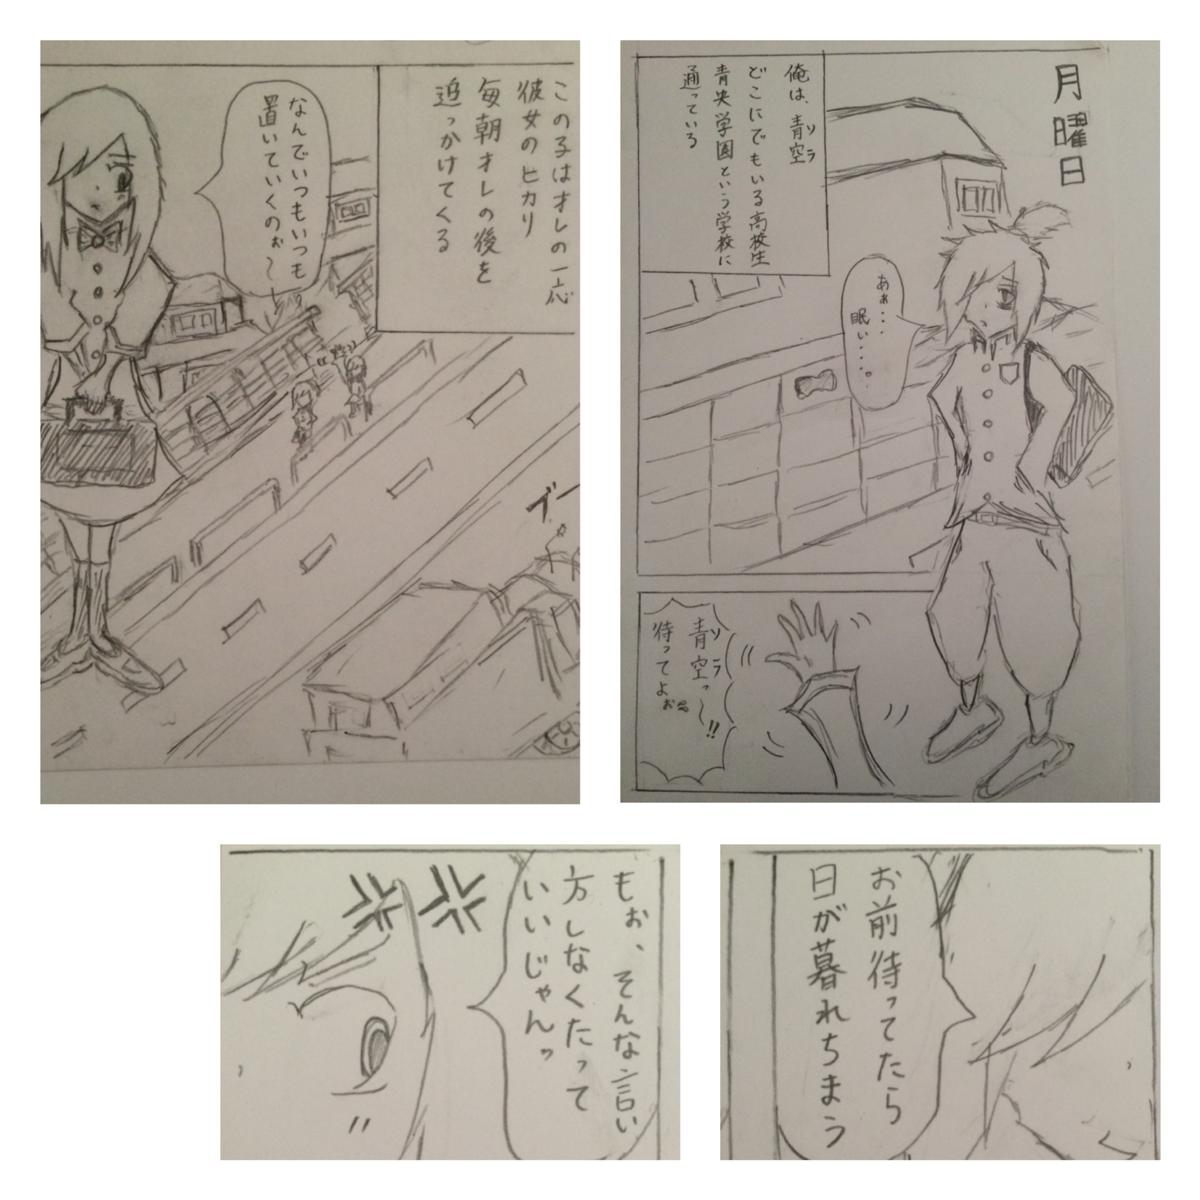 月曜日
俺は、青空
ソラ
どこにでもいる高校生
青央学園という学校に
通っている
あぁ・・・
眠い・・・・。
青空っ〜!!
ソラ
待ってよぉ
この子はオレの一応
彼女のヒカリ
毎朝オレの後を
追っかけてくる
なんでいつもいつも
置いていくのぉ〜
ブー
お前待ってたら
日が暮れちまう
もぉ、そんな言い
方しなくたって
いいじゃんっ